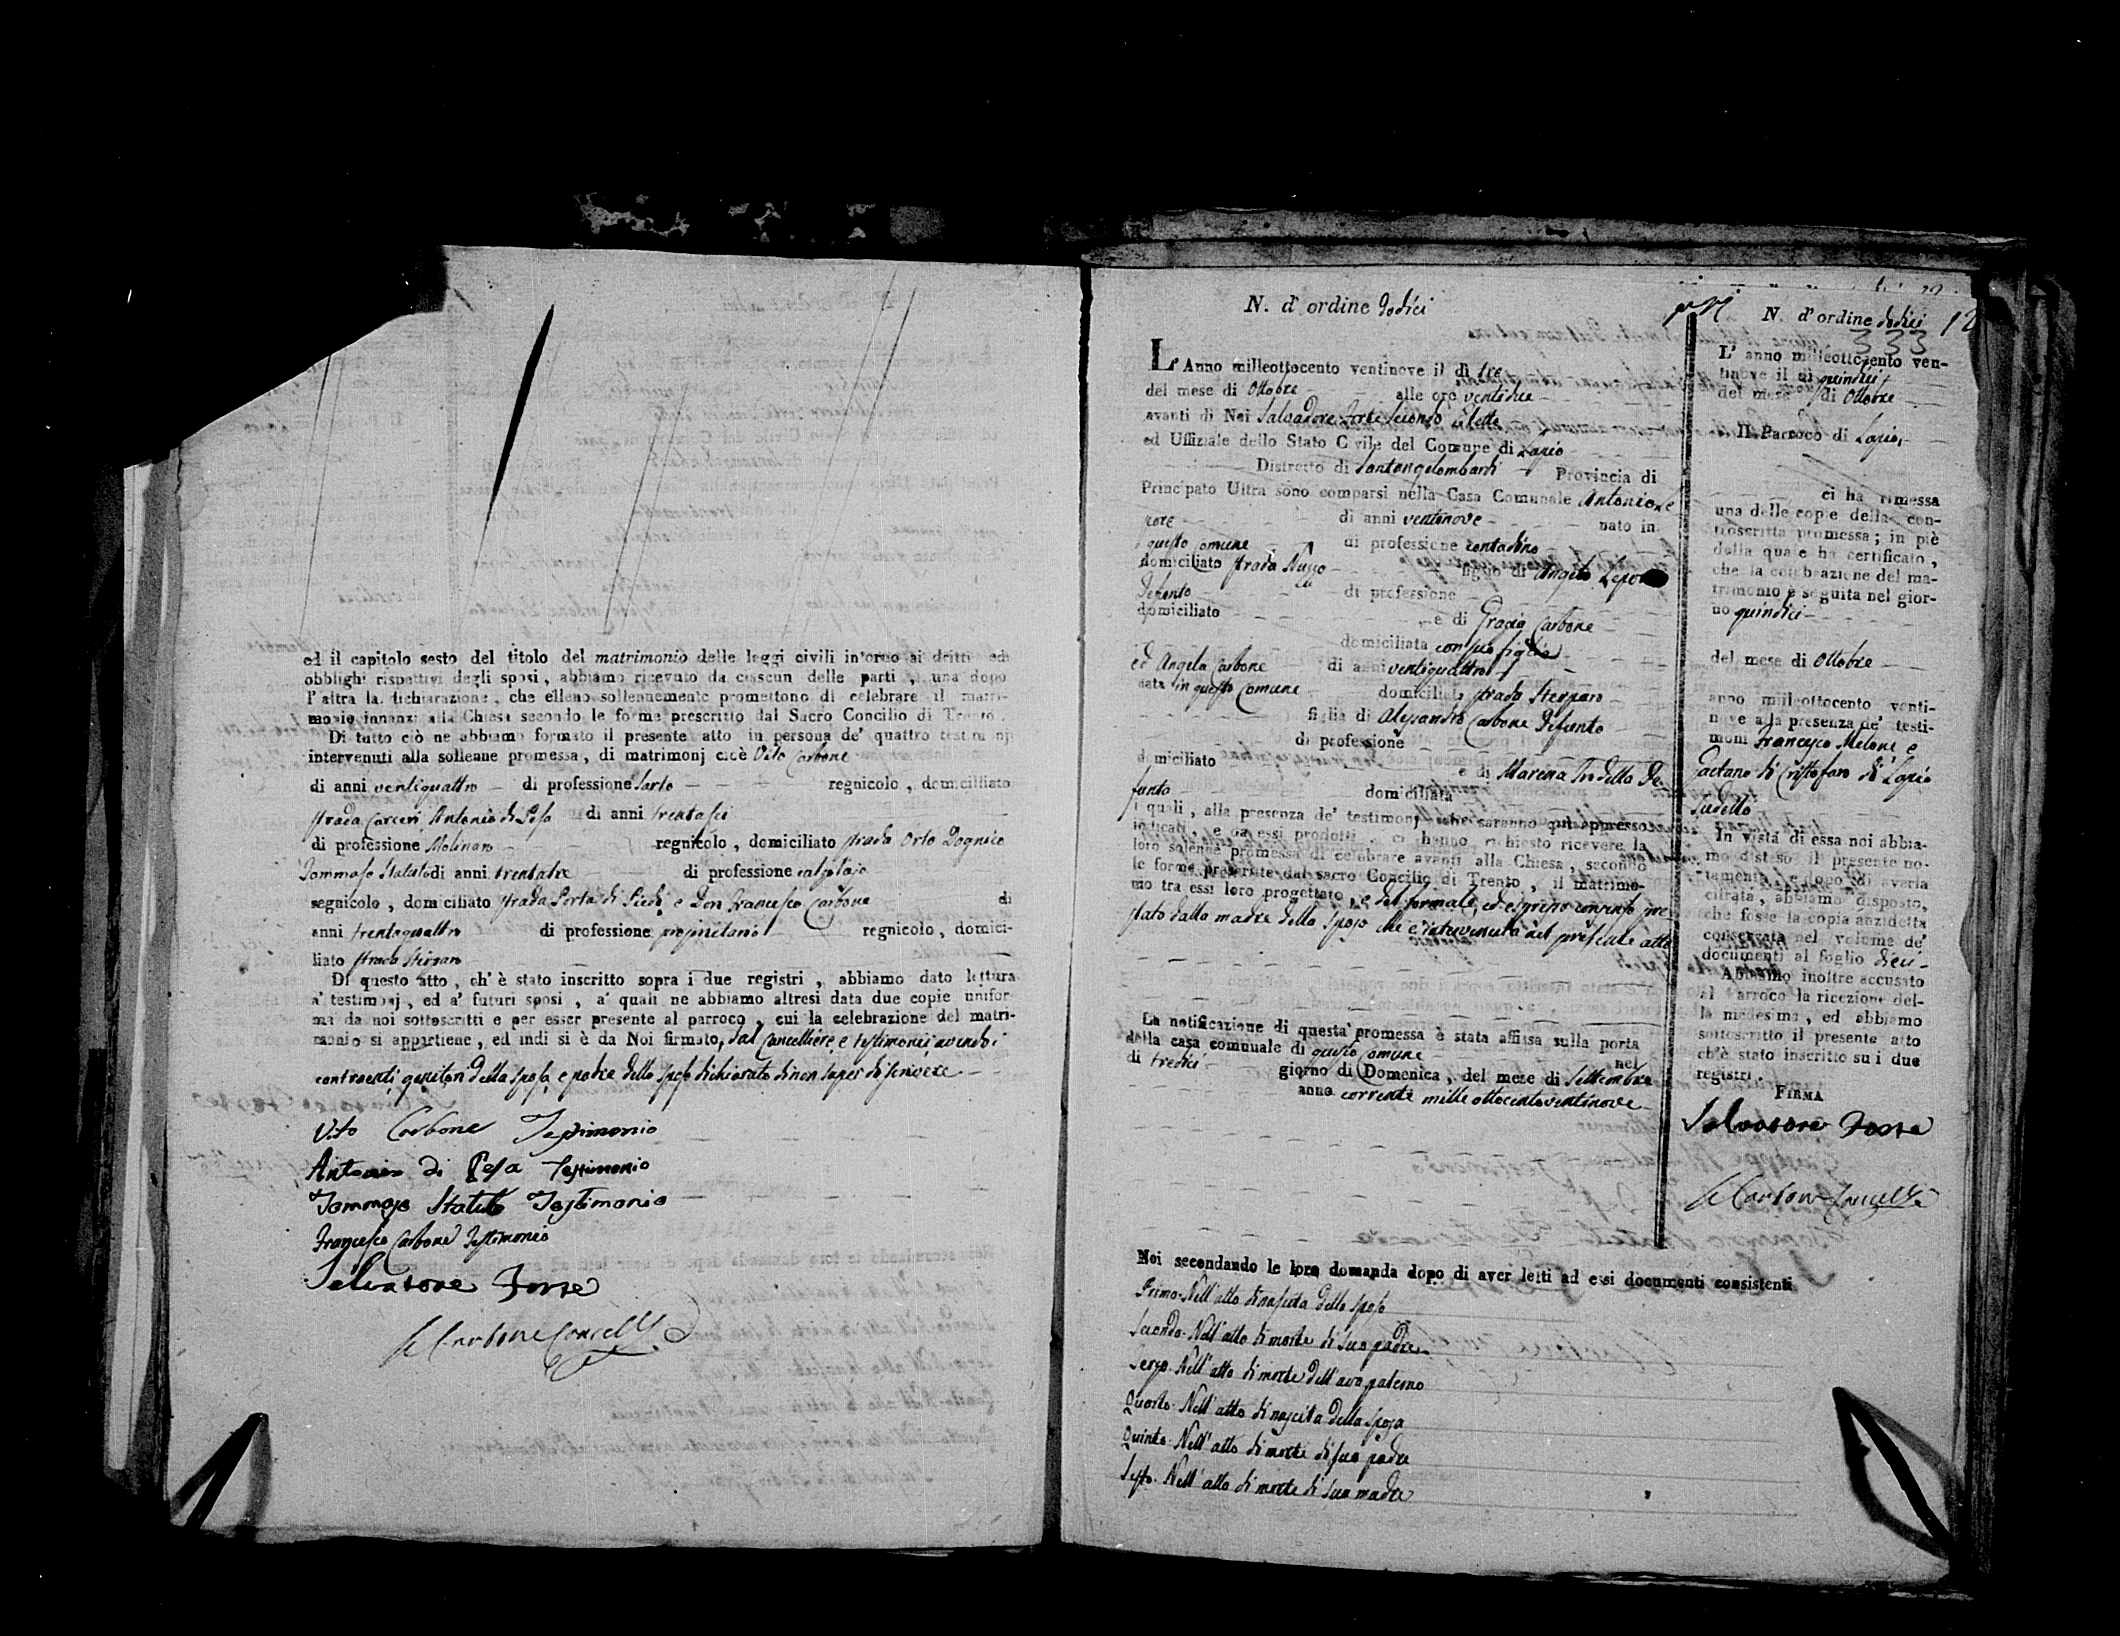 ed il capitolo sesto del titolo del matrimonio delle leggi civili intorno ai dritti ed
obblighi rispettivi degli sposi, abbiamo ricevuto da ciascun delle parti, una dopo
l'altra la dichiarazione, che elleno sollennemente promettono di celebrare il matri-
monio innanzi alla Chiesa secondo le forme prescritto dal Sacro Concilio di Trento.
Di tutto ciò ne abbiamo formato il presente atto in persona de' quattro testimonj
intervenuti alla sollenne promessa, di matrimonj cioè Vito Carbone
di anni ventiquattro di professione Sarto regnicolo, domiciliato
strada Carceri, Antonio di Pesa di anni trentasei
di professione Molinaro regnicolo, domiciliato strada Orto Dognico
Tommaso Statuto di anni trentatre di professione calzolajo
regnicolo, domiciliato strada Porta di Piedi, e Don Francesco Carbone di
anni trentaquattro di professione proprietario regnicolo, domici-
liato strada Sterparo
Di questo atto, ch'è stato inscritto sopra i due registri, abbiamo dato lettura
a' testimonj, ed a' futuri sposi, a' quali ne abbiamo altresi data due copie unifor
mi da noi sottoscritti e per esser presente al parroco, cui la celebrazione del matri-
monio si appartiene, ed indi si è da Noi firmato, dal Cancelliere, e testimonj, avendo i
contraenti, genitori della sposa, e padre dello sposo dichiarato di non saper di scrivere
Vito Carbone Testimonio
Antonio di Pesa Testimonio
Tommaso Statuto Testimonio
Francesco Carbone Testimonio
Salvatore Forte
Carbone Cancell
N. d'ordine dodici
L'Anno milleottocento ventinove il dì tre
del mese di Ottobre alle ore ventidue
avanti di Noi Salvadore Forte Secondo Eletto
ed Uffiziale dello Stato Civile del Comune di Lazio
Distretto di Santangelombardi Provincia di
Principato Ultra sono comparsi nella Casa Comunale Antonio Le
pore di anni ventinove nato in
questo Comune di professione contadino
domiciliato strada Nuzzo figlio di Angelo Lepore
Defonto di professione
domiciliato e di Grazia Carbone
domiciliata con suo figlio
ed Angela Carbone di anni ventiquattro
nata in questo Comune domiciliata strada Sterparo
figlia di Alessandro Carbone Defunto
di professione
domiciliato e di Marena Tudello De-
funto domiciliata
i quali, alla presenza de' testimonj che saranno qui appresso
indicati, e da essi prodotti, ci hanno richiesto ricevere la
loro solenne promessa di celebrare avanti alla Chiesa, secondo
le forme prescritte dal sacro Concilio di Trento, il matrimo-
nio tra essi loro progettato, e del formale, ed espresso consenso pre
stato dalla madre dello sposo che è intervenuta nel presente atto
La notificazione di questa promessa è stata affissa sulla porta
della casa comunale di questo Comune nel
di tredici giorno di Domenica, del mese di Settembre
anno corrente mille ottocentoventinove
Noi secondando le loro domanda dopo di aver letti ad essi documenti consistenti
Primo. Nell'atto di nascita dello sposo
Secondo. Nell'atto di morte di suo padre
Terzo. Nell'atto di morte dell'avo paterno
Quarto. Nell'atto di nascita della sposa
Quinto. Nell'atto di morte di suo padre
Sesto. Nell'atto di morte di sua madre
N. d'ordine dodici 12
333
L'anno milleottocento ven-
tinove il dì quindici
del mese di Ottobre
Il Parroco di Lazio,
ci ha rimessa
una delle copie della con-
troscritta promessa; in piè
della quale ha certificato,
che la celebrazione del ma-
trimonio è seguita nel gior-
no quindici
del mese di Ottobre
anno milleottocento venti-
nove alla presenza de' testi-
moni Francesco Melone e
Gaetano di Cristofaro di Lazio
sudetto
In vista di essa noi abbia-
mo disteso il presente no-
tamento, e dopo di averla
cifrata, abbiamo disposto,
che fosse la copia anzidetta
conservata nel volume de'
documenti al foglio dieci
Abbiamo inoltre accusato
al Parroco la ricezione del-
la medesima, ed abbiamo
sottoscritto il presente atto
ch'è stato inscritto su i due
registri.
FIRMA
Salvatore Forte
Carbone Cancell